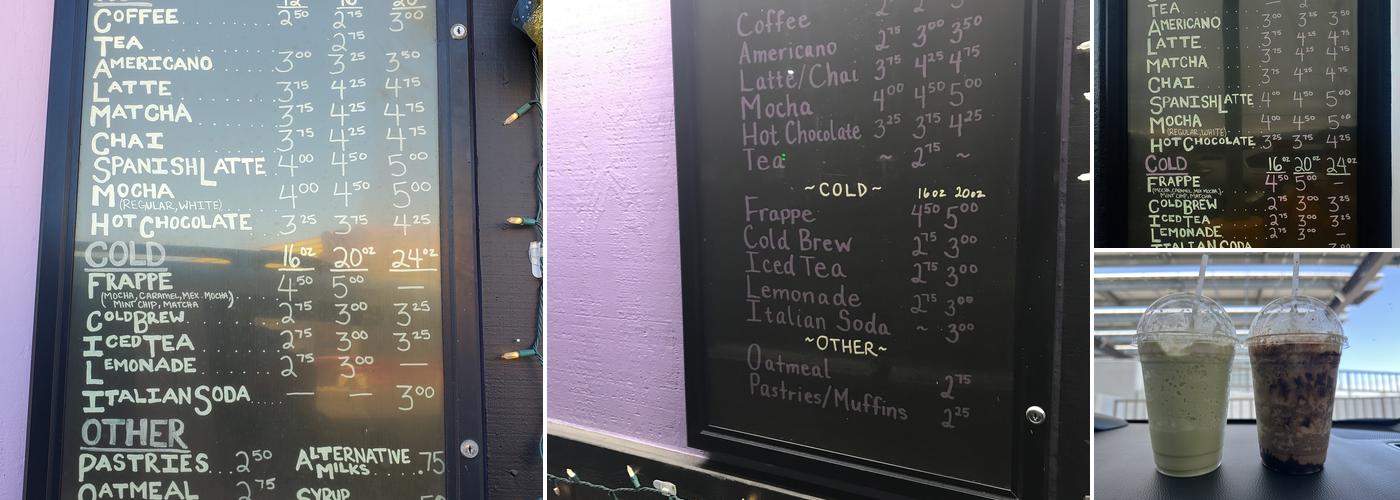 12 16 20
COFFEE 2.50 2.75 3.00
TEA 2.75
AMERICANO 3.00 3.25 3.50
LATTE 3.75 4.25 4.75
MATCHA 3.75 4.25 4.75
CHAI 3.75 4.25 4.75
SPANISH LATTE 4.00 4.50 5.00
MOCHA 4.00 4.50 5.00
(REGULAR, WHITE)
HOT CHOCOLATE 3.25 3.75 4.25
COLD 16oz 20oz 24oz
FRAPPE 4.50 5.00 —
(MOCHA, CARAMEL, MEX. MOCHA,
MINT CHIP, MATCHA)
COLD BREW 2.75 3.00 3.25
ICED TEA 2.75 3.00 3.25
LEMONADE 2.75 3.00 —
ITALIAN SODA — — 3.00
OTHER
PASTRIES 2.50 ALTERNATIVE MILKS .75
OATMEAL 2.75 SYRUP .50
Coffee
Americano 2.75 3.00 3.50
Latte/Chai 3.75 4.25 4.75
Mocha 4.00 4.50 5.00
Hot Chocolate 3.25 3.75 4.25
Tea ~ 2.75 ~
~COLD~ 16oz 20oz
Frappe 4.50 5.00
Cold Brew 2.75 3.00
Iced Tea 2.75 3.00
Lemonade 2.75 3.00
Italian Soda ~ 3.00
~OTHER~
Oatmeal 2.75
Pastries/Muffins 2.25
TEA
AMERICANO 3.00 3.25 3.50
LATTE 3.75 4.25 4.75
MATCHA 3.75 4.25 4.75
CHAI 3.75 4.25 4.75
SPANISH LATTE 4.00 4.50 5.00
MOCHA 4.00 4.50 5.00
(REGULAR, WHITE)
HOT CHOCOLATE 3.25 3.75 4.25
COLD 16oz 20oz 24oz
FRAPPE 4.50 5.00 —
(MOCHA, CARAMEL, MEX MOCHA,
MINT CHIP, MATCHA)
COLD BREW 2.75 3.00 3.25
ICED TEA 2.75 3.00 3.25
LEMONADE 2.75 3.00 —
ITALIAN SODA